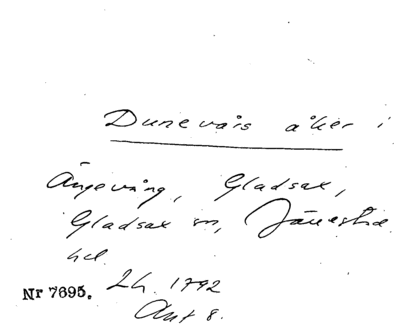 Dunevårs åker i
Ängevång, Gladsax,
Gladsax sn, Järrestad
hd.
Lh. 1792
Nr 7695.
Akt 8.